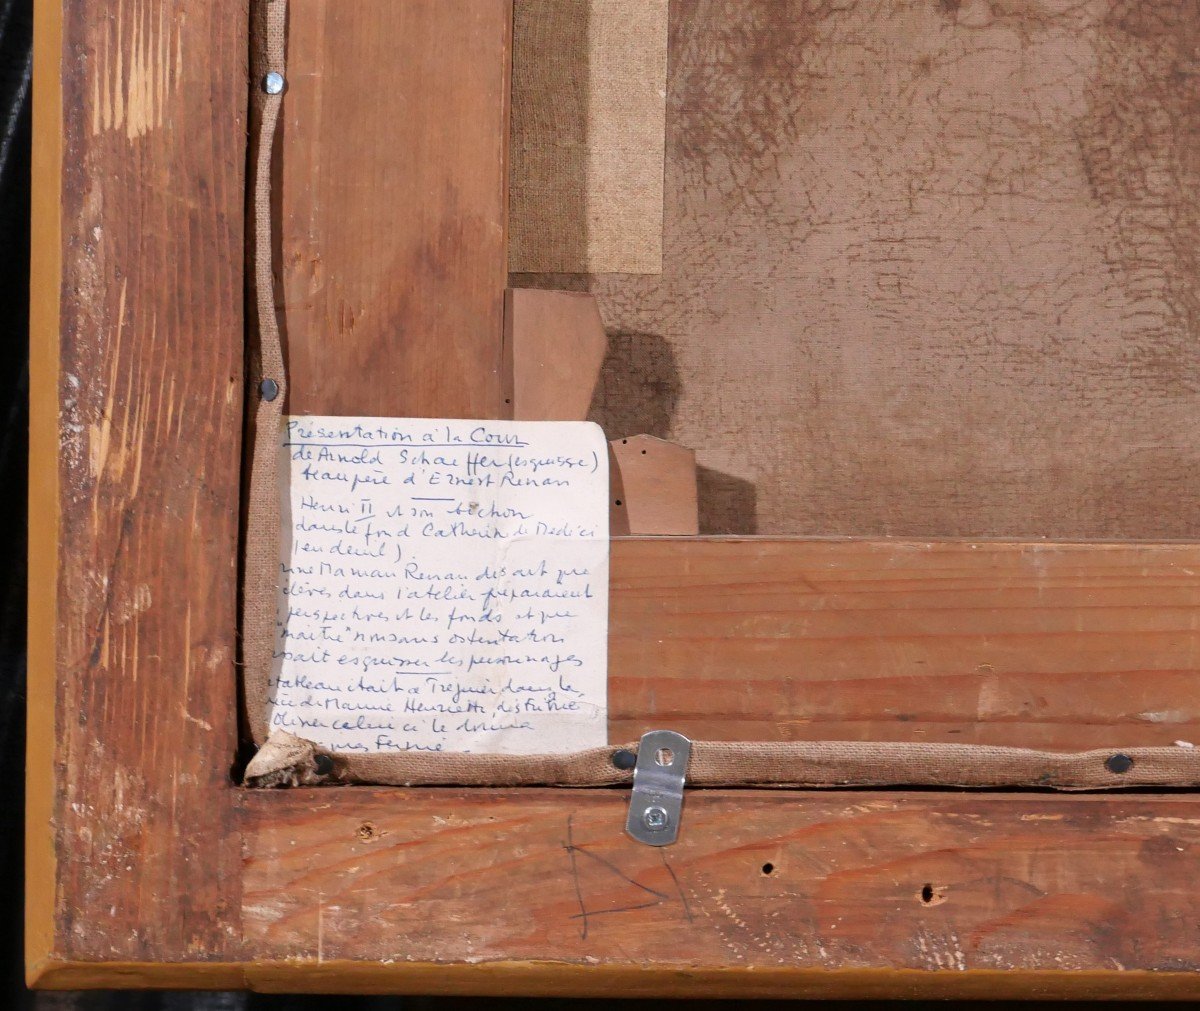 Présentation à la Cour
de Arnold Schaeffer (esquisse)
beau père d'Ernest Renan
Henri II et son bichon
dans le fond Catherine de Medici
(en deuil).
Maman Renan disait que
élèves dans l'atelier préparaient
perspectives et les fonds et que
"maitre" non sans ostentation
esquisser les personnages
tableau était à Tréguier dans la
de Mamie Henriette,
celui ci le donna